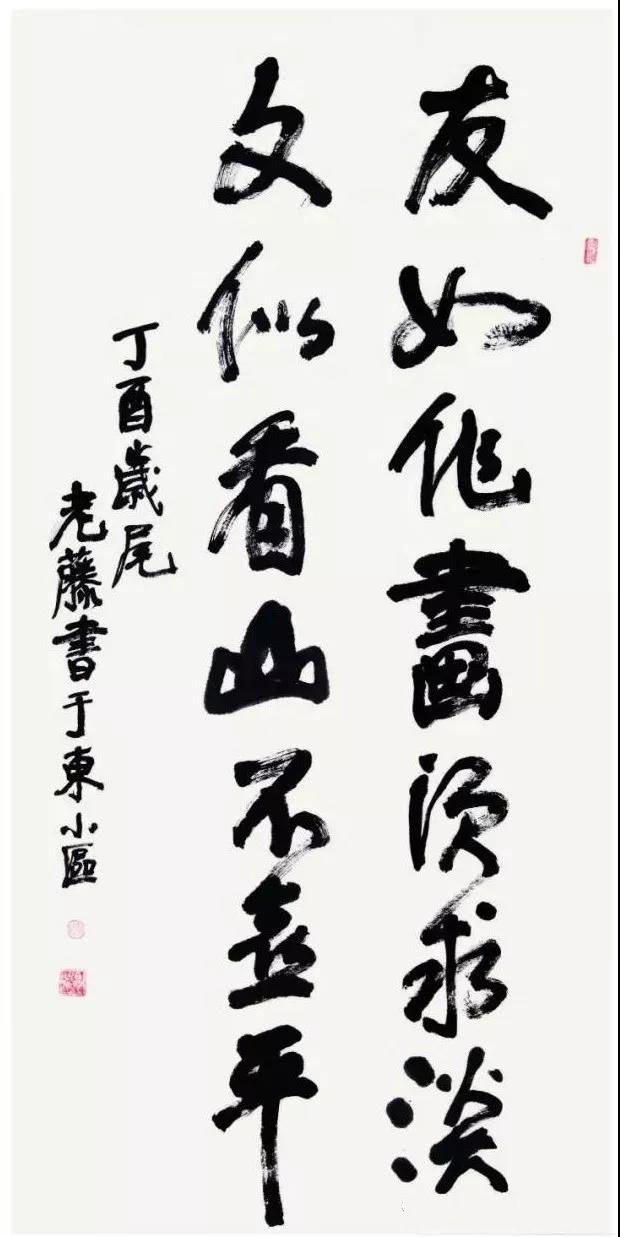 友如作畫須求淡
文似看山不喜平
丁酉歲尾
老藤書于東小區